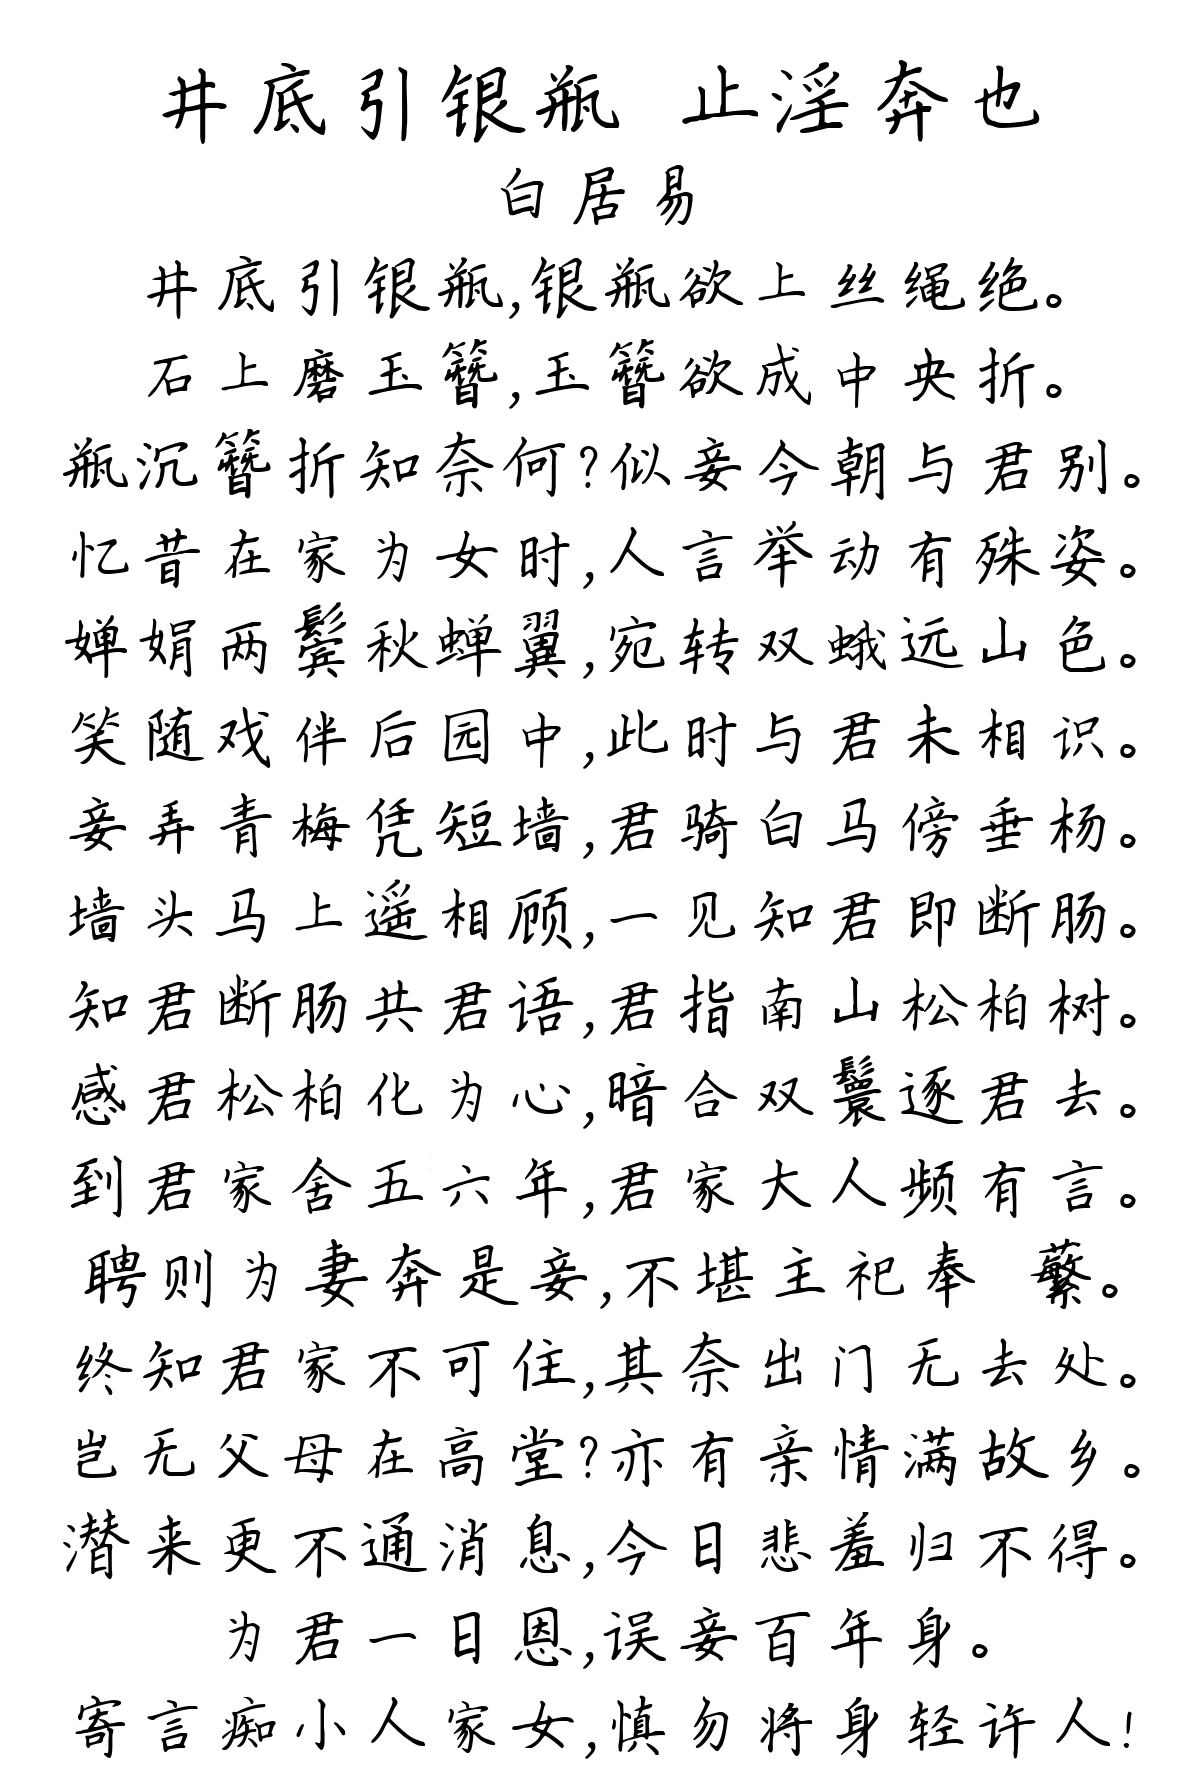 井底引银瓶 止淫奔也
白居易
井底引银瓶,银瓶欲上丝绳绝。
石上磨玉簪,玉簪欲成中央折。
瓶沉簪折知奈何?似妾今朝与君别。
忆昔在家为女时,人言举动有殊姿。
婵娟两鬓秋蝉翼,宛转双蛾远山色。
笑随戏伴后园中,此时与君未相识。
妾弄青梅凭短墙,君骑白马傍垂杨。
墙头马上遥相顾,一见知君即断肠。
知君断肠共君语,君指南山松柏树。
感君松柏化为心,暗合双鬟逐君去。
到君家舍五六年,君家大人频有言。
聘则为妻奔是妾,不堪主祀奉 蘩。
终知君家不可住,其奈出门无去处。
岂无父母在高堂?亦有亲情满故乡。
潜来更不通消息,今日悲羞归不得。
为君一日恩,误妾百年身。
寄言痴小人家女,慎勿将身轻许人!